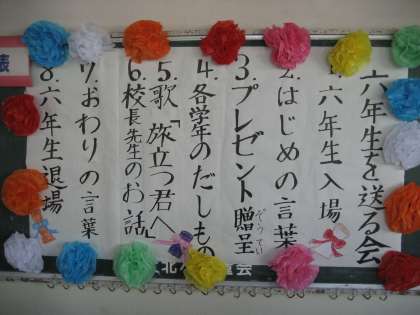 六年生を送る会
1.六年生入場
2.はじめの言葉
3.プレゼント贈呈
ぞうてい
4.各学年のだしもの
5.歌「旅立つ君へ」
6.校長先生のお話
7.おわりの言葉
8.六年生退場